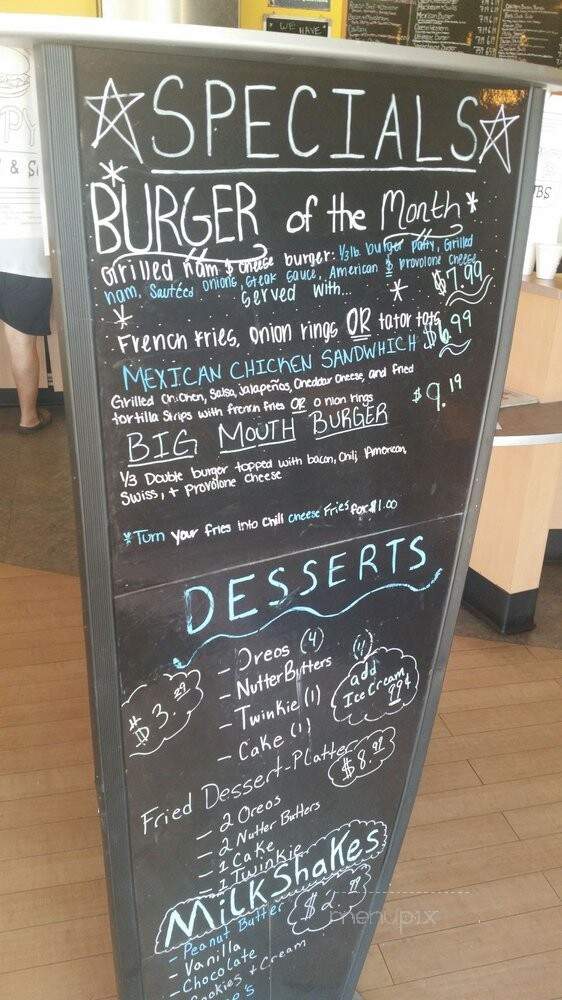 WE HAVE
SPECIALS
BURGER of the Month
Grilled ham & cheese burger: 1/3 lb. burger patty, Grilled
ham, Sautéed onions, steak sauce, American & provolone cheese
$7.99
Served with...
French Fries, Onion rings OR tator tots
MEXICAN CHICKEN SANDWHICH $6.99
Grilled Chicken, Salsa, jalapeños, Cheddar cheese, and fried
tortilla strips with french fries OR onion rings
BIG MOUTH BURGER $9.19
1/3 Double burger topped with bacon, Chili, American,
Swiss, + Provolone Cheese
*Turn your fries into chili cheese Fries for $1.00
DESSERTS
- Oreos (4)
- NutterButters (4)
- Twinkie (1)
- Cake (1)
$3.29
add
Ice Cream
99¢
Fried Dessert-Platter $8.99
- 2 Oreos
- 2 Nutter Butters
- 1 Cake
- 1 Twinkie
MilkShakes
$2.99
- Peanut Butter
- Vanilla
- Chocolate
- Cookies + Cream
menupix